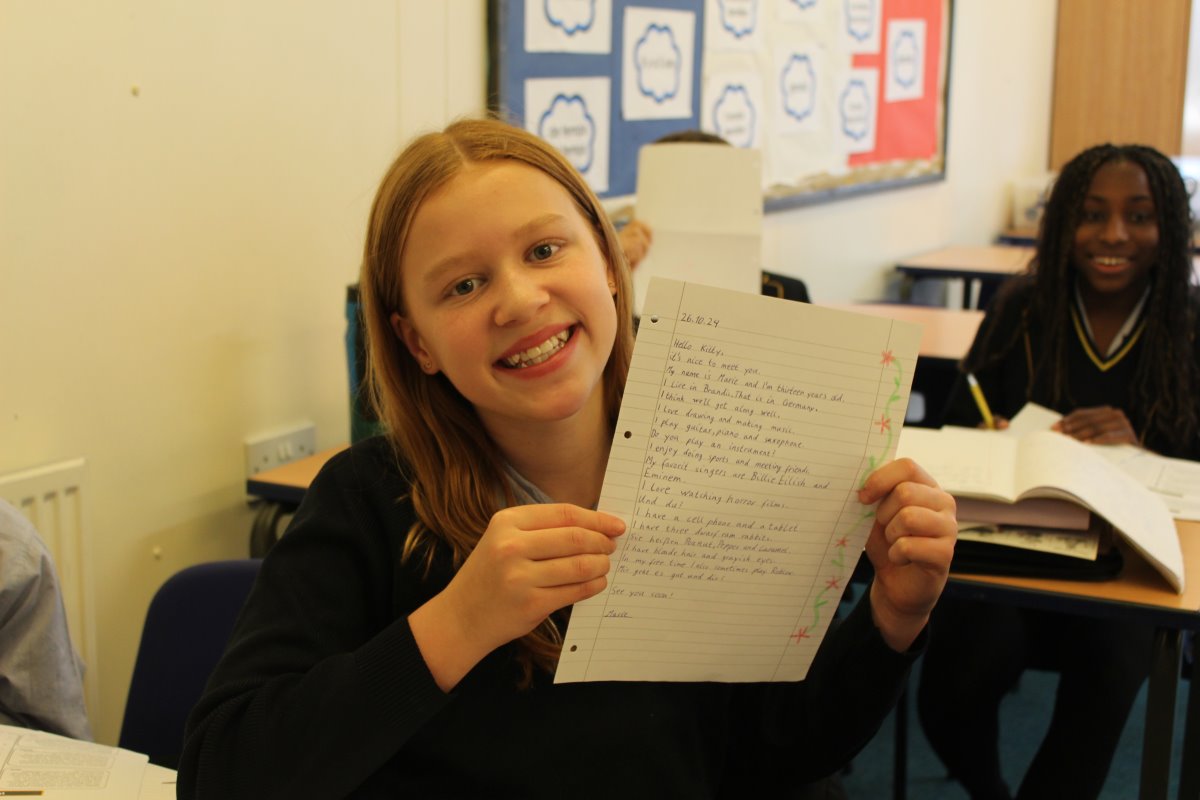 26.10.24
Hello Kitty,
it's nice to meet you.
My name is Marie and I'm thirteen years old.
I Live in Brandis. That is in Germany.
I think we'll get along well.
I Love drawing and making music.
I play guitar, piano and saxophone.
Do you play an instrument?
I enjoy doing sports and meeting friends.
My favorit singers are Billie Eilish and
Eminem.
I Love watching horror films.
Und du?
I have a cell phone and a tablet.
I have three dwarf ram rabbits.
Sie heißen Peanut, Pepper and Caramel.
I have blonde hair and greyish eyes.
In my free time I also sometimes play Roblox.
Mir geht es gut und dir?
See you soon!
Marie